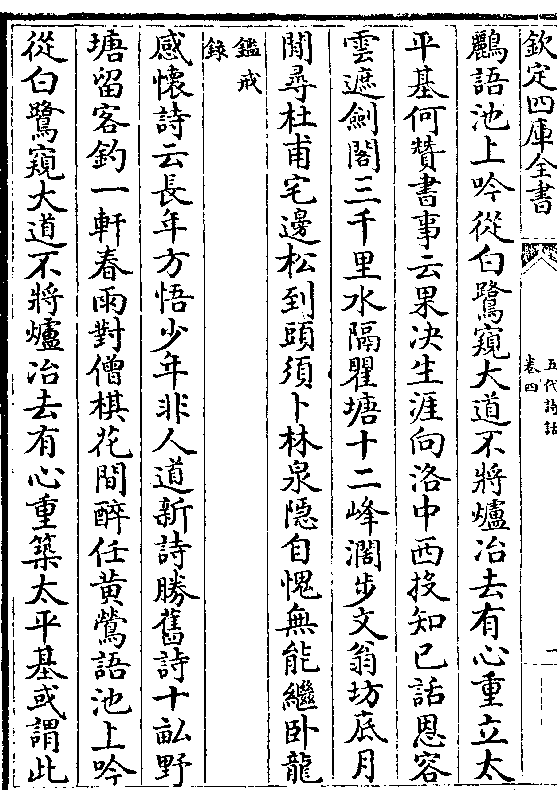 欽定四庫全書
五代詩話
卷四
鸝語池上吟從白鷺窺大道不將爐冶去有心重立太
平基何贊書事云果決生涯向洛中西投知已話恩容
雲遮劍閣三千里水隔瞿塘十二峰濶步文翁坊底月
閒尋杜甫宅邊松到頭須卜林泉隱自愧無能繼卧龍
鑑戒
錄
感懷詩云長年方悟少年非人道新詩勝舊詩十畝野
塘留客釣一軒春雨對僧棋花間醉任黃鶯語池上吟
從白鷺窺大道不將爐冶去有心重築太平基或謂此